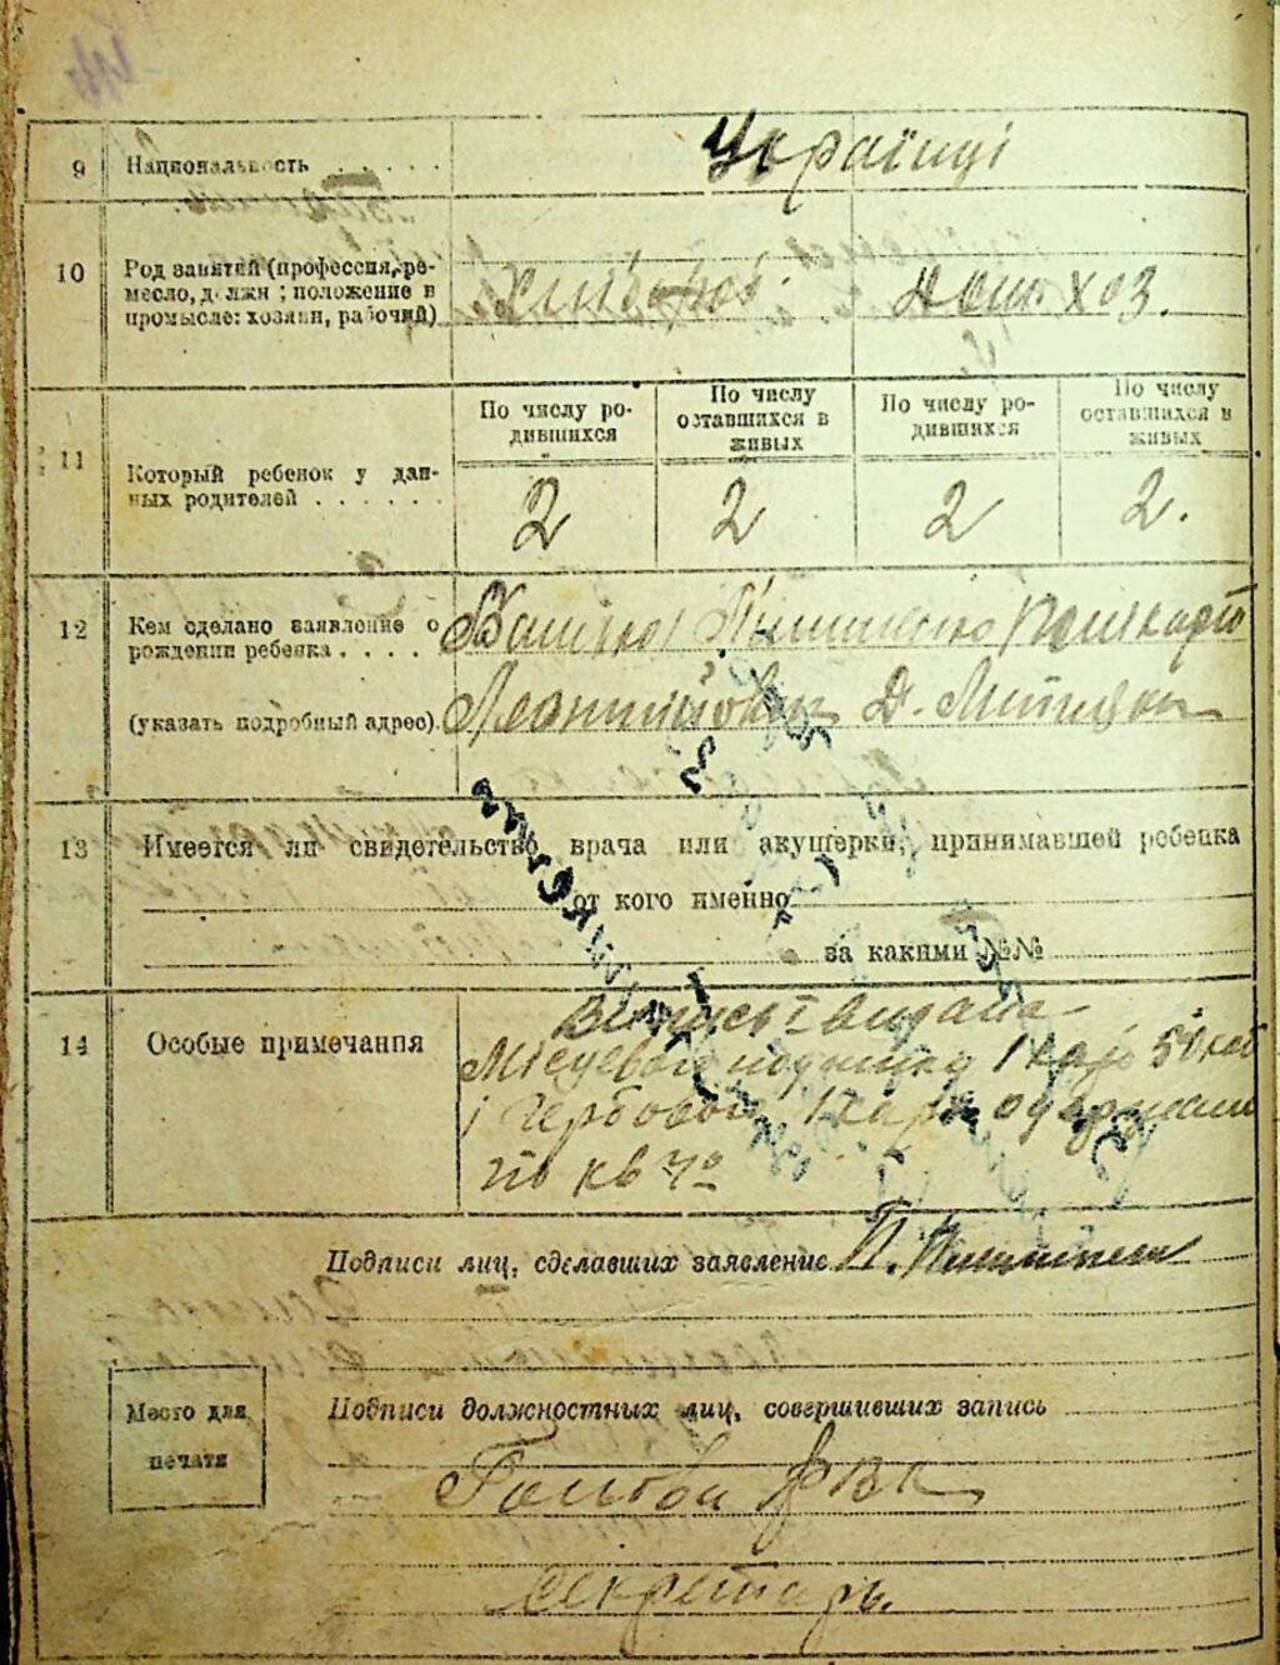 9 Национальность . . . . . Українці
10 Род занятий (профессия, ре-
месло, должн; положение в
промысле: хозяин, рабочий)
Хлібороб дом. хоз.
По числу ро-
дившихся
По числу
оставшихся в
живых
По числу ро-
дившихся
По числу
оставшихся в
живых
11 Который ребенок у дан-
ных родителей . . . . . .
2 2 2 2.
12 Кем сделано заявление о
рождении ребенка . . . .
Батько
(указать подробный адрес).
13 Имеется ли свидетельство врача или акушерки, принимавшей ребенка
от кого именно
за какими №№
14 Особые примечания
Випись видана
Місцевого податку 1 кар 50 коп
і Гербового 1 кар одержано
по кв №
Подписи лиц, сделавших заявление П.
Место для
печати
Подписи должностных лиц, совершивших запись
Голова РВК
Секретарь.